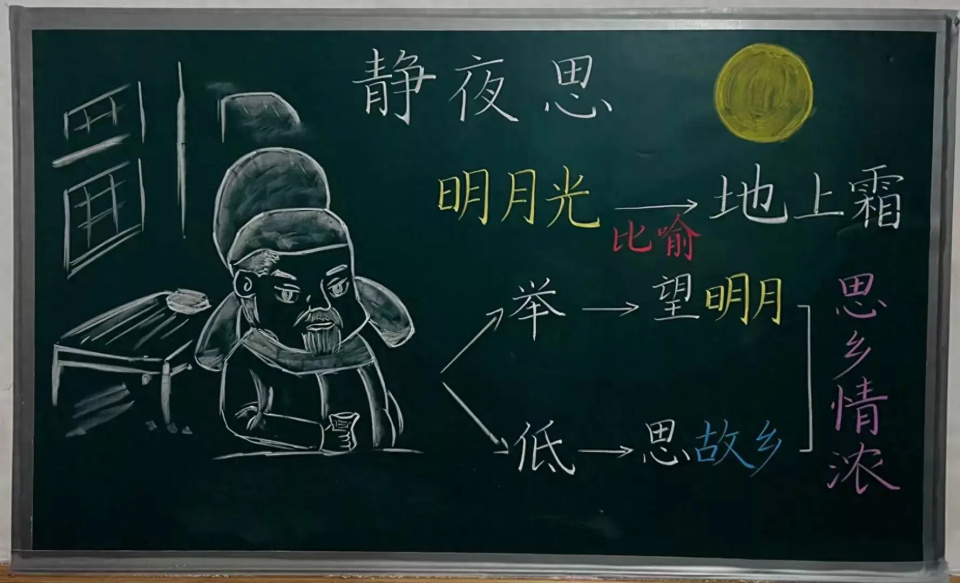 静夜思
明月光 → 地上霜
比喻
举 → 望明月
低 → 思故乡
思乡情浓